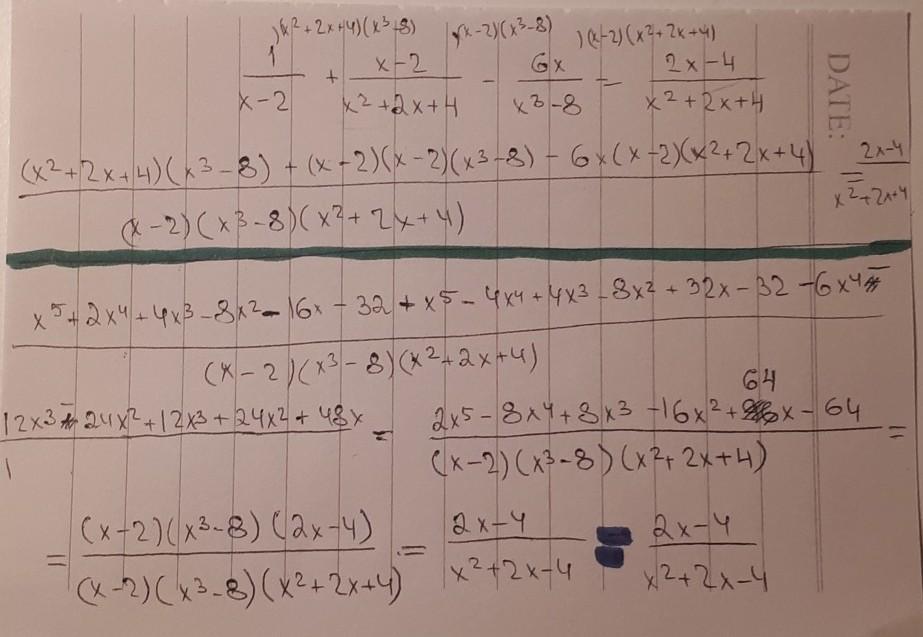 )(x²+2x+4)(x³-8) )(x-2)(x³-8) )(x-2)(x²+2x+4)
1/(x-2) + (x-2)/(x²+2x+4) - 6x/(x³-8) = (2x-4)/(x²+2x+4)
DATE:
((x²+2x+4)(x³-8) + (x-2)(x-2)(x³-8) - 6x(x-2)(x²+2x+4))/((x-2)(x³-8)(x²+2x+4)) = (2x-4)/(x²+2x+4)
(x⁵+2x⁴+4x³-8x²-16x-32+x⁵-4x⁴+4x³-8x²+32x-32-6x⁴-)/((x-2)(x³-8)(x²+2x+4))
(12x³-24x²+12x³+24x²+48x)/1 = (2x⁵-8x⁴+8x³-16x²+64x-64)/((x-2)(x³-8)(x²+2x+4)) =
= ((x-2)(x³-8)(2x-4))/((x-2)(x³-8)(x²+2x+4)) = (2x-4)/(x²+2x-4) = (2x-4)/(x²+2x-4)